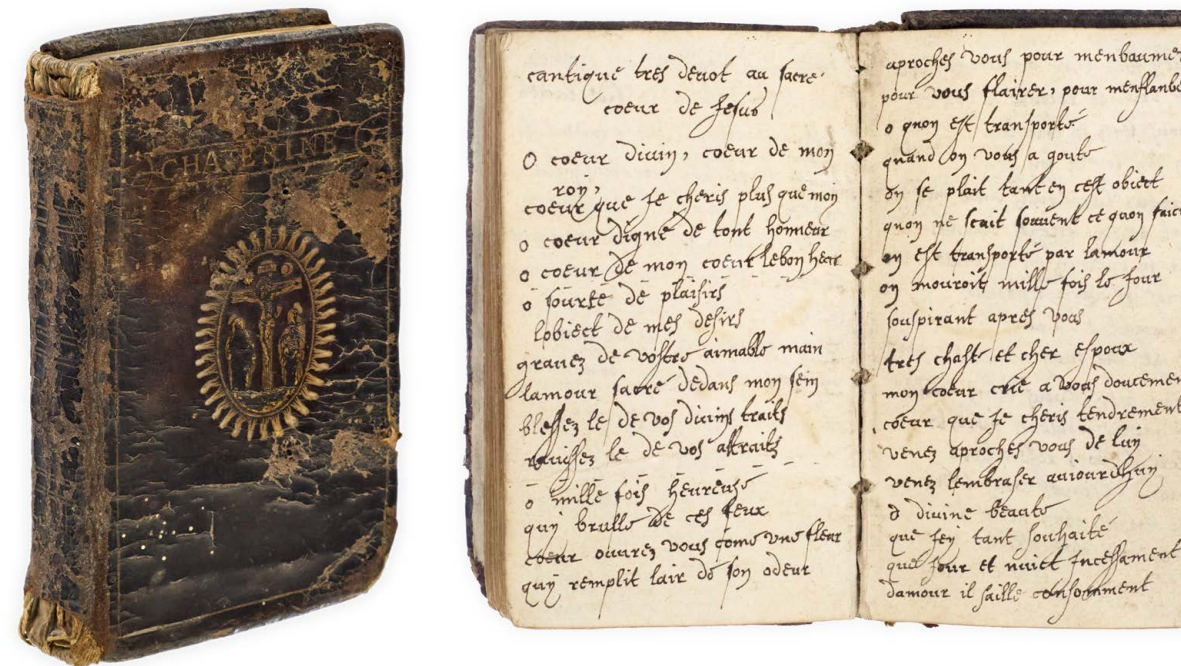 CHATERINE
cantique tres devot au sacre
coeur de Jesus
O coeur divin, coeur de mon
roy,
coeur que Je cheris plus que moy
o coeur digne de tout honneur
o coeur de mon coeur lebon heur
o sourse de plaisirs
lobiect de mes desirs
grauez de vostre aimable main
lamour sacre dedans mon sein
blessez le de vos diuins traits
rauissez le de vos attraits
o mille fois heureuse
quy brulle de ces feux
coeur ouurez vous come vne fleur
quy remplit lair de son odeur
aproches vous pour menbaumer
pour vous flairer, pour menflanbe
o quon est transporté
quand on vous a goute
on se plait tant en cest obiect
quon ne scait souuent ce quon faict
on est transporté par lamour
on mouroit mille fois le Jour
souspirant apres vous
tres chaste et cher espoux
mon coeur crie a vous doucemen
coeur que Je cheris tendrement
venez aproches vous de luy
venez lembraser auiourdhuy
o diuine beaute
que Jey tant souhaité
que Jour et nuict Incessament
damour il faille consomment